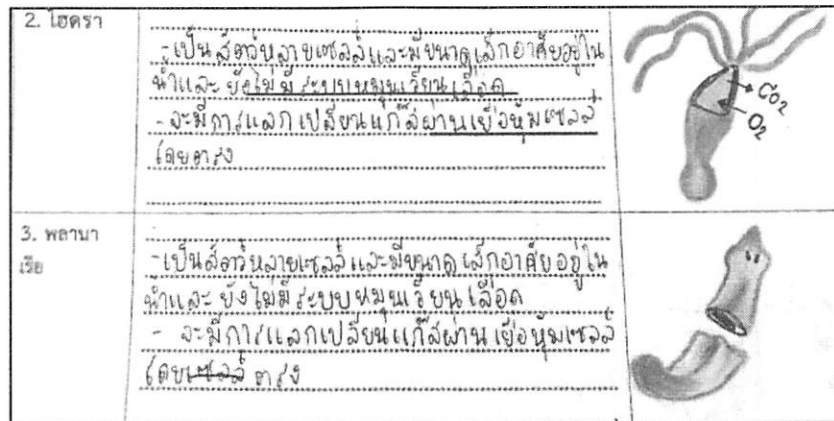 2. ไฮดรา
- เป็นสัตว์หลายเซลล์และมีขนาดเล็กอาศัยอยู่ใน
น้ำและ ยังไม่มีระบบหมุนเวียนเลือด
- จะมีการแลกเปลี่ยนแก๊สผ่านเยื่อหุ้มเซลล์
โดยตรง
CO2
O2
3. พลานา
เรีย
- เป็นสัตว์หลายเซลล์ และมีขนาดเล็กอาศัยอยู่ใน
น้ำและ ยังไม่มีระบบหมุนเวียนเลือด
- จะมีการแลกเปลี่ยนแก๊สผ่านเยื่อหุ้มเซลล์
โดยเซลล์ ตรง